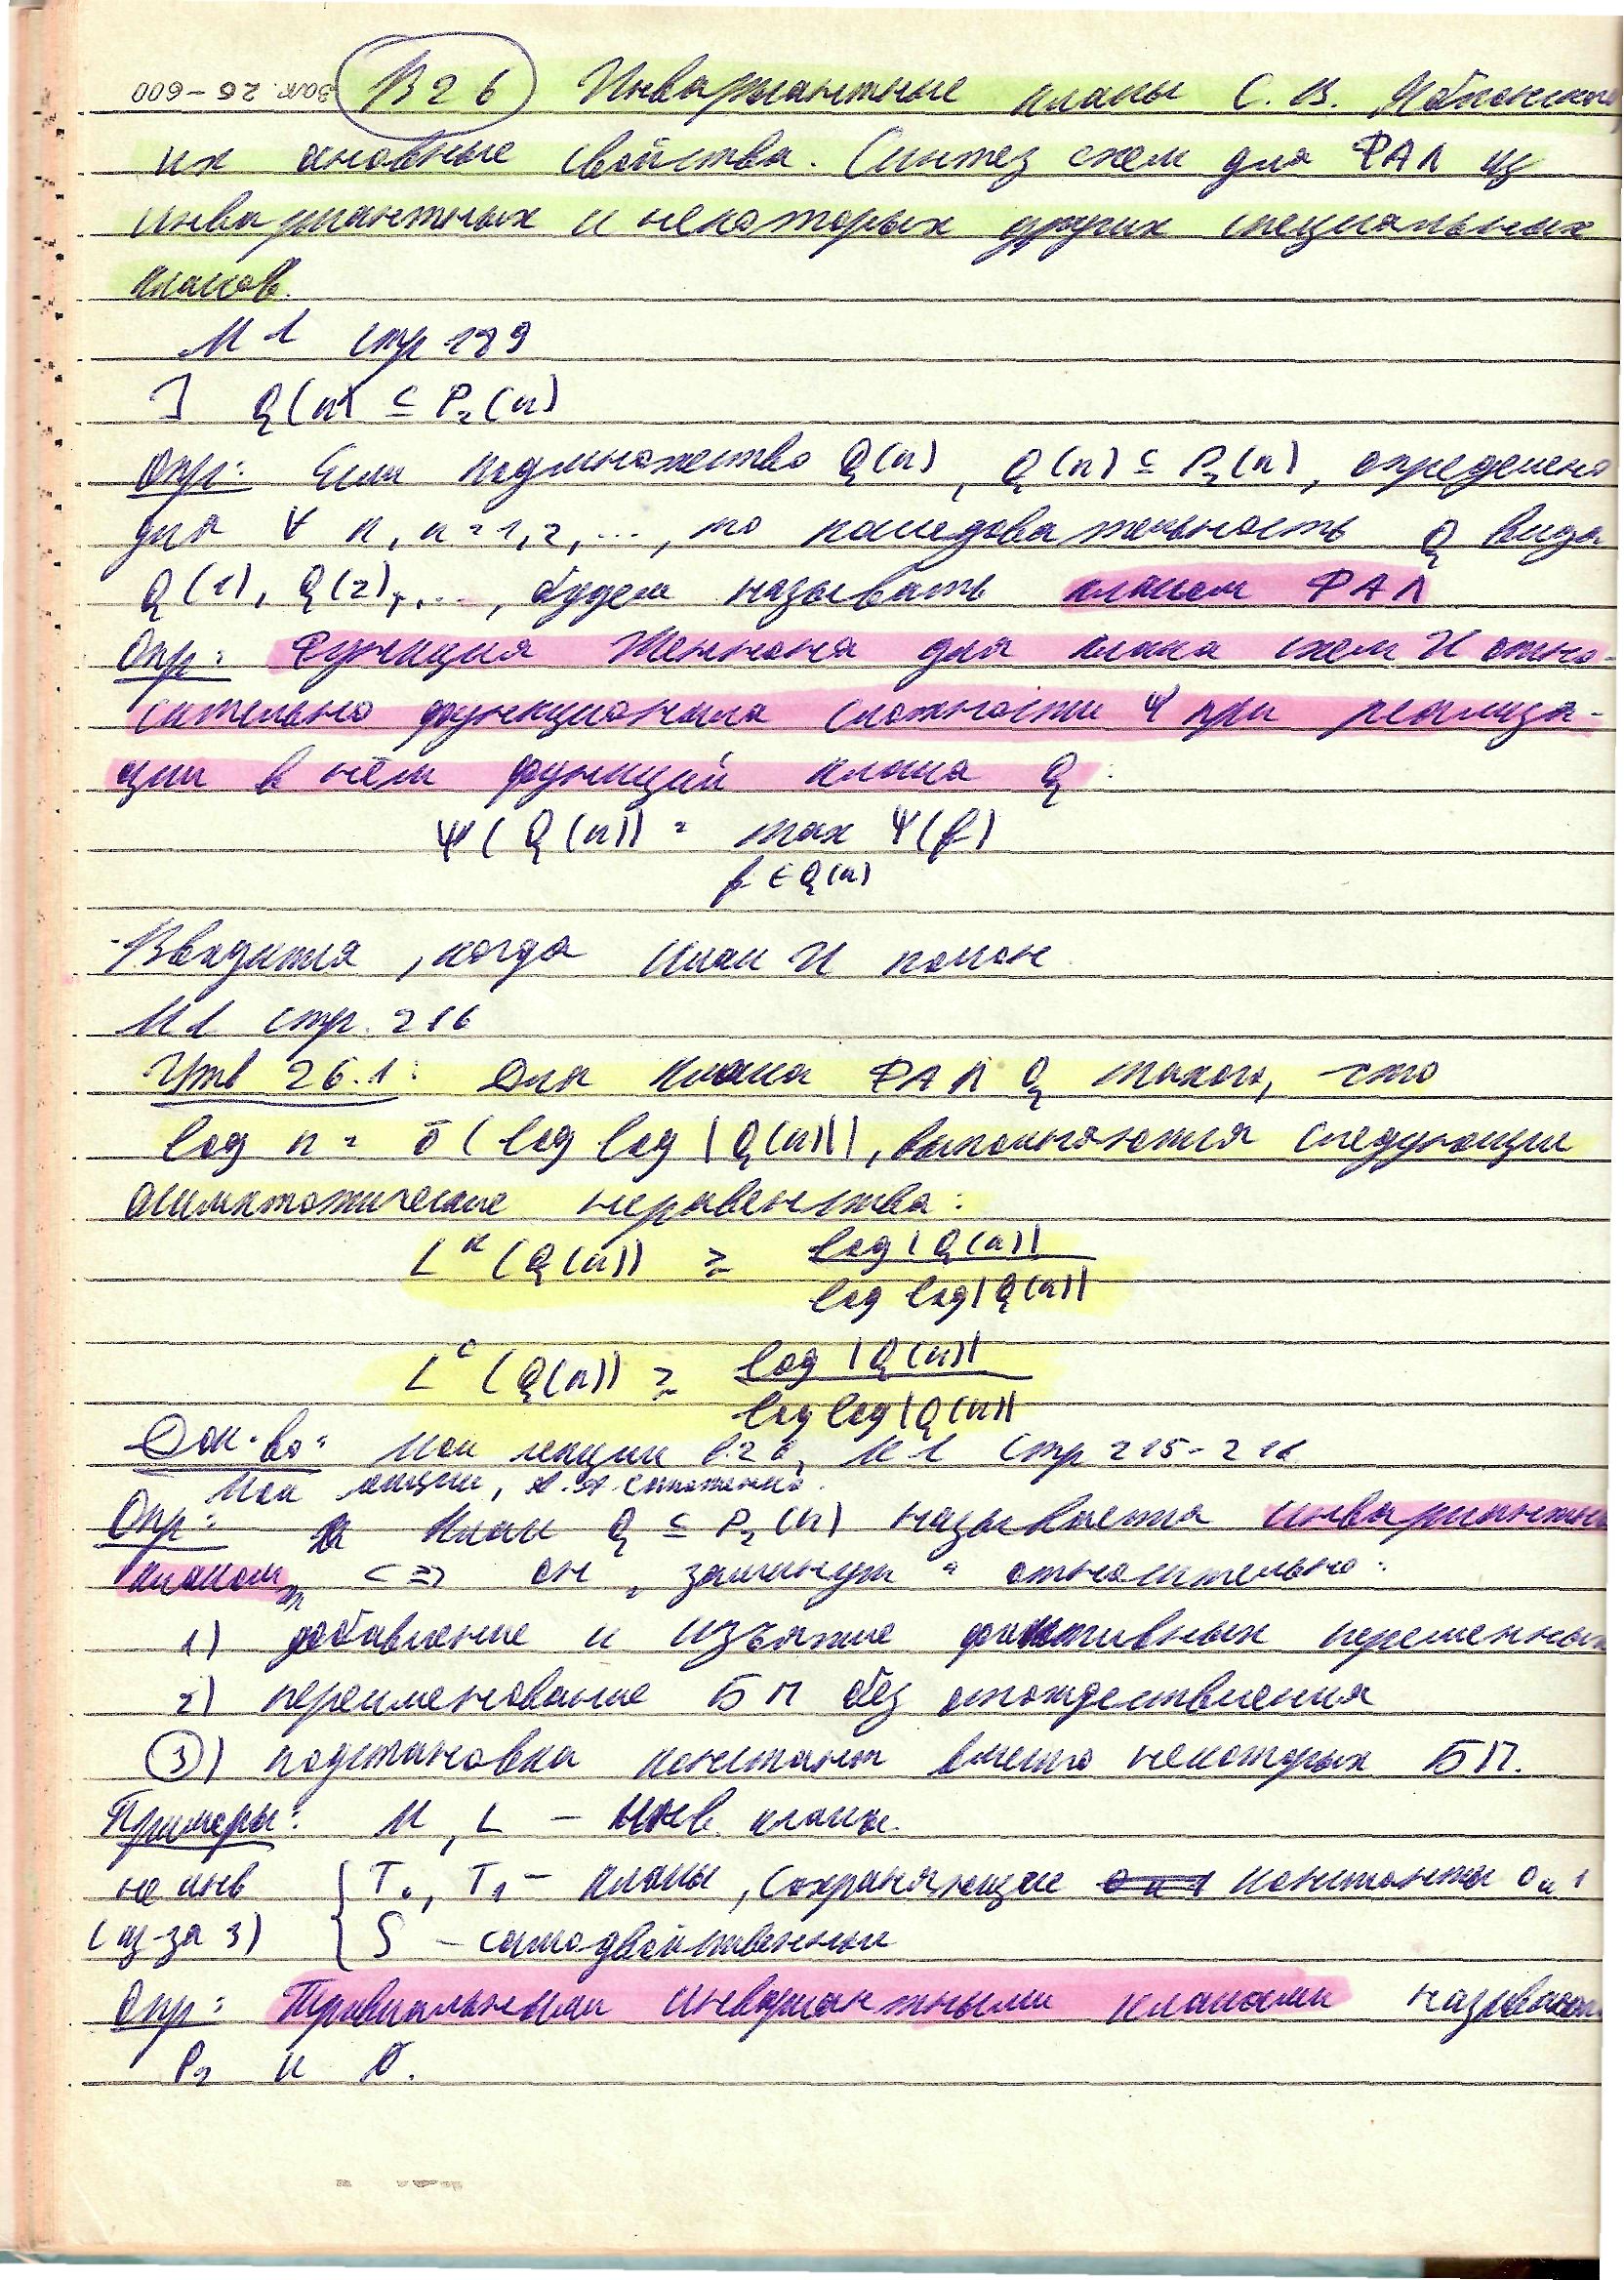 Зак. 26-600
В26 Инвариантные классы С. В. Яблонского
их основные свойства. Синтез схем для ФАЛ из
инвариантных и некоторых других специальных
классов.
М1 стр 189
] Q(n) ⊆ P₂(n)
Опр: Если подмножество Q(n), Q(n) ⊆ P₂(n), определено
для ∀ n, n = 1, 2, ..., то последовательность Q вида
Q(1), Q(2), ..., будем называть классом ФАЛ
Опр: Функция Шеннона для класса схем U отно-
сительно функционала сложности Ψ при реализа-
ции в нём функций класса Q:
Ψ(Q(n)) = max Ψ(f)
f ∈ Q(n)
Вводится, когда класс U полон
М1 стр. 216
Утв 26.1: Для класса ФАЛ Q такого, что
log n = ō(log log |Q(n)|), выполняются следующие
асимптотические неравенства:
L^K (Q(n)) ≳ log |Q(n)| / log log |Q(n)|
L^C (Q(n)) ≳ log |Q(n)| / log log |Q(n)|
Док-во: Мои лекции в.26, М1 стр 215-216
Мои лекции,
Опр: Класс Q ⊆ P₂(n) называется инвариантным
классом, <=> он "замкнут" относительно:
1) добавление и изъятие фиктивных переменных
2) переименование БП без отождествления
3) подстановка констант вместо некоторых БП.
Примеры: M, L – инв. классы.
не инв { T₀, T₁ – классы, сохраняющие 0 и 1 константы 0 и 1
(из-за 3) S – самодвойственные
Опр: Тривиальными инвариантными классами называют
P₂ и ∅.